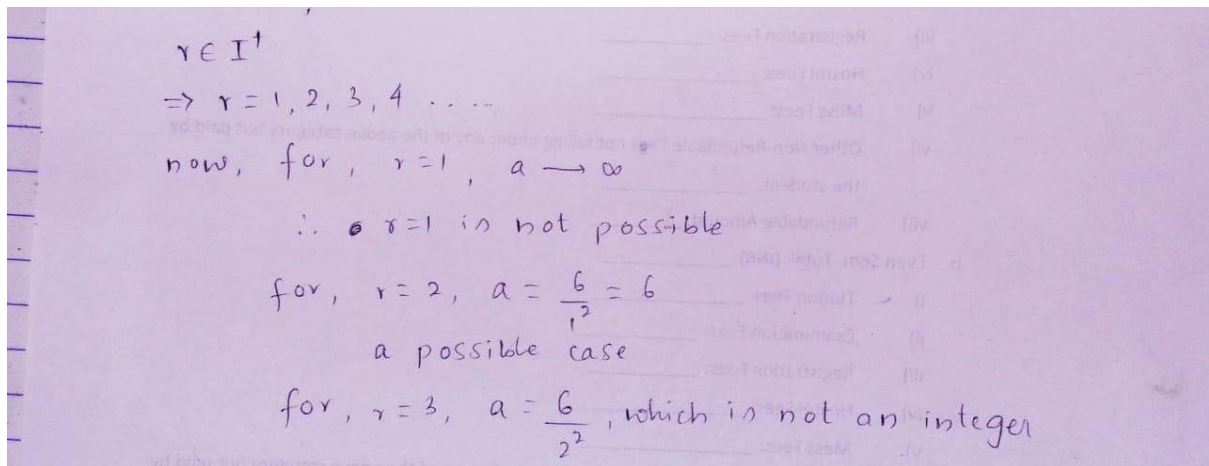 r ∈ I⁺
=> r = 1, 2, 3, 4 .....
now, for, r=1, a → ∞
∴ r=1 is not possible
for, r=2, a = 6/1² = 6
a possible case
for, r=3, a = 6/2², which is not an integer